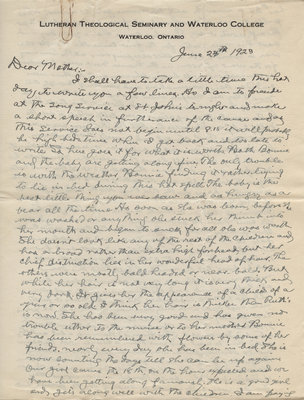 LUTHERAN THEOLOGICAL SEMINARY AND WATERLOO COLLEGE
WATERLOO, ONTARIO
June 24th 1923
Dear Mother:-
I shall have to take a little time this hot
day, to write you a few lines. As I am to preside
at the Song Service at St. John's to-night and make
a short speech in furtherance of the cause and as
this Service does not begin until 8.15 it will probably
be high bed time when I get back and too late to
write so I'll give it for what it is worth. Both Bonnie
and the baby are getting along fine. The only trouble
is with the weather. Bonnie finding it rather trying
to lie in bed during this hot spell. The baby is the
best little thing you ever saw and as hungry as a
bear all the time. As soon as she was born, before she
was washed or anything she stuck her thumb into
her mouth and began to suck for all she was worth.
She doesn't look like any of the rest of the children and
has a broad rather than a high forehead but her
chief distinction lies in her wonderful head of hair. The
others were mostly bald headed or near bald. But
while her hair is not very long it is very thick and
very dark. It gives her the appearance of a child of a
year or so old. I think her hair is thicker than Ruth's
is now. She has been very good and has given no
trouble either to the nurse or to her mother. Bonnie
has been remembered with flowers by some of her
friends, nearly every day she has been in bed. She is
now counting the days till she can be up again.
Our girl came the 16th on the hour expected and we
have been getting along famously. She is a good girl
and gets along well with the children. I am going